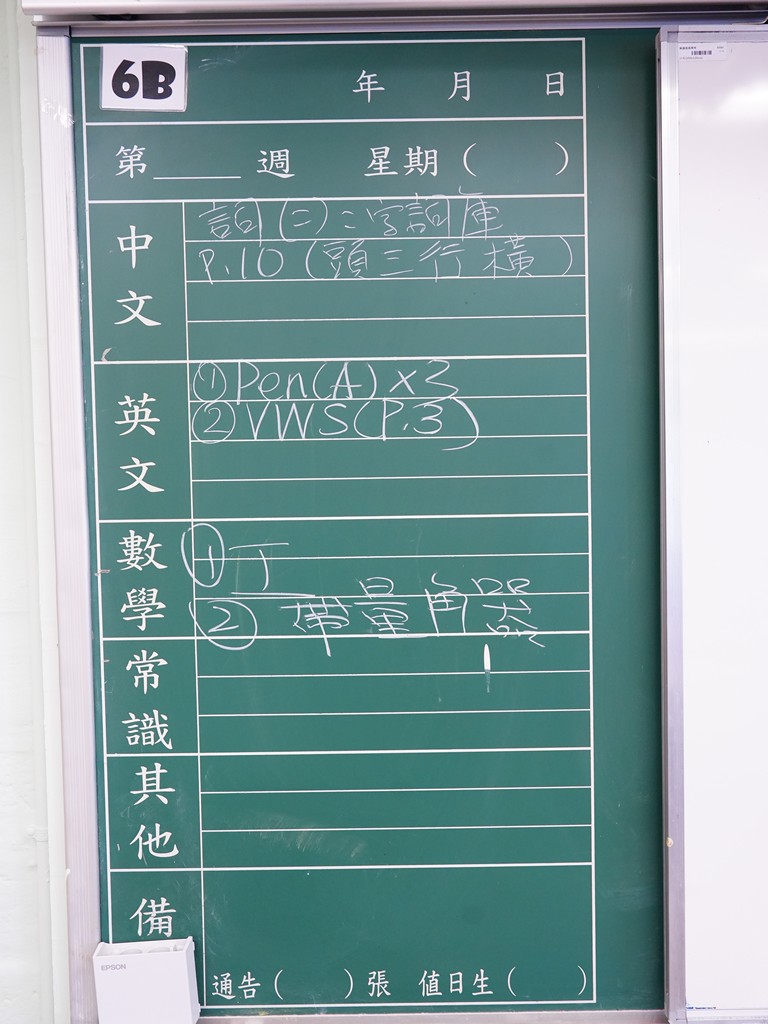 6B
年 月 日
第____週 星期( )
中文
詞(二):字詞庫
P.10(頭三行橫)
英文
①Pen(A)×3
②VWS(P.3)
數學
①丁
②帶量角器
常識
其他
備
EPSON
通告( )張 值日生( )